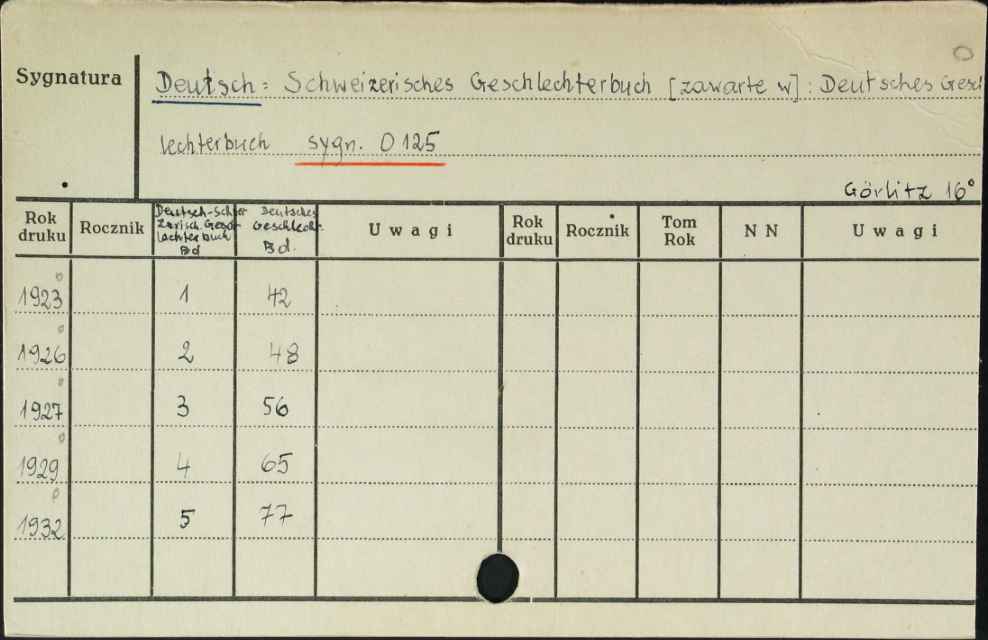 Sygnatura
Deutsch = Schweizerisches Geschlechterbuch [zawarte w] : Deutsches Gesch
lechterbuch sygn. O 125
Görlitz 16°
Rok druku Rocznik Deutsch-Schwei Deutsches Uwagi Rok druku Rocznik Tom Rok NN Uwagi
zerisch. Gesch Geschlecht.
lechterbuch
Bd Bd.
1923 1 42
1926 2 48
1927 3 56
1929 4 65
1932 5 77